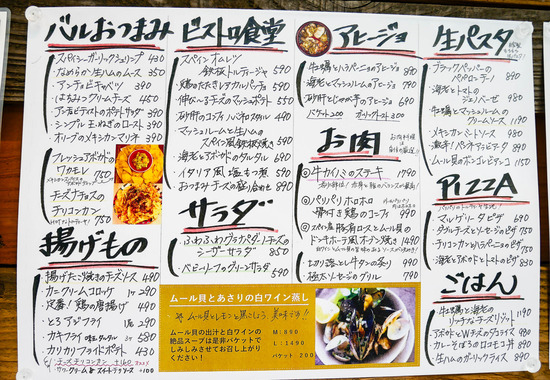 バルおつまみ
スパイシーガーリックシュリンプ 430
なめらか生ハムのムース 350
アンチョビキャベツ 390
はちみつクリームチーズ 450
アンチョビトマトのポテトサラダ 390
シンプル玉ねぎのロースト 390
オリーブのメキシカンマリネ 390
フレッシュアボカドの
ワカモレ 750
チーズナチョスの
チリコンカン
750
揚げもの
揚げたこ焼きのチーズソース 490
カニクリームコロッケ 1ヶ 290
定番!鶏の唐揚げ 490
とろアジフライ 1枚 290
カキフライ 580
カリカリフライドポテト 430
ビストロ食堂
スペインオムレツ
鉄板トルティージャ 590
鶏のたたき 590
伸びーるチーズのマッシュポテト 550
砂肝のコンフィ 550
マッシュルームと生ハムの
スペイン風鉄板焼き 680
海老とアボカドのタルタル 680
イタリア風塩もつ煮 580
おつまみチーズの盛り合わせ 690
サラダ
ふわふわグラナパダーノチーズの
シーザーサラダ 850
ベビーリーフのグリーンサラダ 590
ムール貝とあさりの白ワイン蒸し
ムール貝とレモンと黒こしょう 美味です!!
ムール貝の出汁と白ワインの
絶品スープは是非バケットで
しみしみさせてお召し上がり
ください!
M:850
L:1490
バケット:200
アヒージョ
牡蠣とハラペーニョのアヒージョ 890
海老とマッシュルームのアヒージョ 790
砂肝としゃか芋のアヒージョ 690
バケット 200
お肉
牛カイノミのステーキ 1790
パリパリホロホロ
骨付き鶏のコンフィ 990
スペイン産豚肩ロースとムール貝の
ドンキホーテ風オーブン焼き 1490
切り落とし牛タンの炙り 990
極太ソーセージのグリル 790
生パスタ
ブラックペッパーの
ペペロンチーノ 890
海老とトマトの
ジェノベーゼ 980
牡蠣とマッシュルームの
クリームソース 1190
メキシカンミートソース 980
激辛!ペンネアラビアータ 890
ムール貝のボンゴレビアンコ 1150
PIZZA
マルゲリータピザ 690
ダブルチーズとソーセージのピザ 750
チリコンカンとハラペーニョのピザ 750
海老とアボカドとトマトのピザ 850
ごはん
牡蠣と海老の
リッチなチーズリゾット 1190
アボカドとWチーズのタコライス 980
カレーそぼろのロコモコ丼 890
生ハムのガーリックライス 890